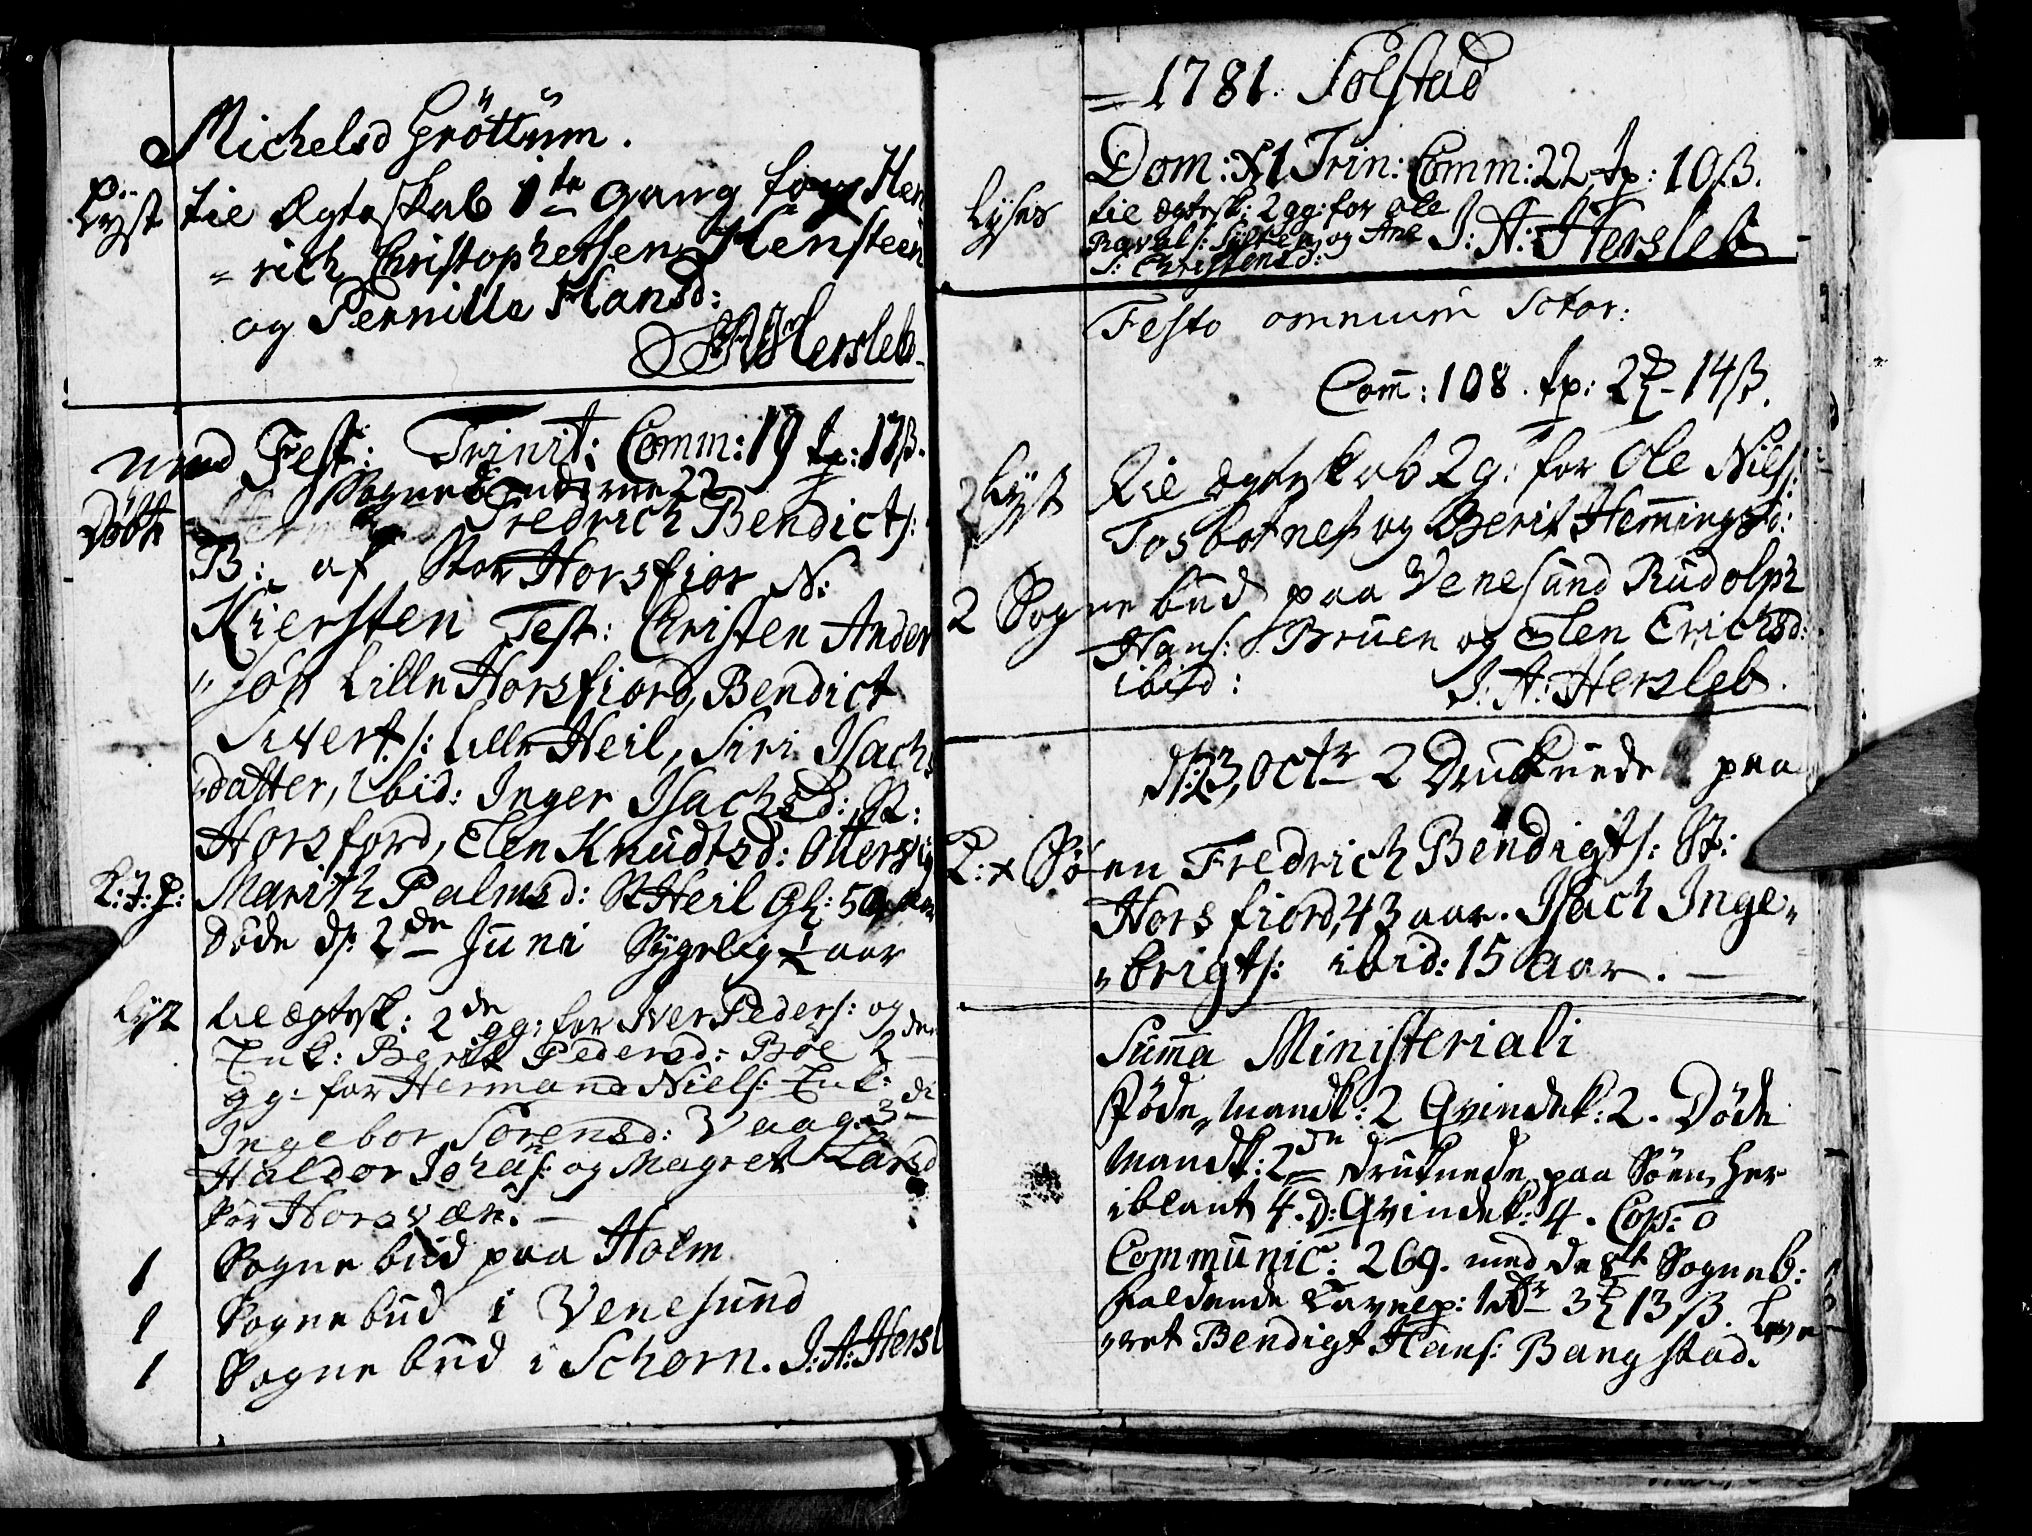 Michelsd Gröttum.
Lyst til Ægteskab 1te gang for Hen
rich Christophersen Hensteen
og Pernille Hansd:
Hersleb
Fest: Trinit: Comm: 19 tp: 17ß.
Sognebuderne 22
Döbte Fredrich Bendicts:
B: af Stor Horsfior N:
Kiersten Test: Christen Ander
"søn Lille Horsfiord, Bendict
Sivert s: Lille Heil, Siri Isachs
"datter, ibid: Inger Isachsd: St:
Horsfiord, Elen Knudtsd: Ottersvig
L: J: P: Marith Palmsd: St Heil Gl: 50 aar
Döde d: 2de Juni Sygelig ½ aar
Lyst til Ægtesk: 2de gg: for Iver Peders: og
Enk: Berit Pedersd: Böe 2de
gg: for Hermand Niels: Enk:
Ingebor Sörensd: Vaag. 3die
Haldor Johans: og Magret Larsd
for Horsvær. —
1 Sognebud paa Holm
1 Sognebud i Venesund
1 Sognebud i Schorn. J: A: Hersl
= 1781. Solstad
Dom: XI Trin: Comm: 22 tp: 10ß.
Lyses til Ægtesk: 2 gg: for Ole
og Ane J: A: Hersleb
Christensd:
Festo omnium Sctor:
Com: 108. tp: 2 — 14ß.
2 Lyst til Ægteskab 2 g: for Ole Niels:
Tosbotnes og Berit Hemmingsd:
2 Sognebud paa Venesund Rudolph
Hans: Bruen og Elen Erichsd:
ibid: J: A: Hersleb.
d: 23, Octr 2 Druknede paa
L: + Söen Fredrich Bendigts: St:
Horsfiord, 43 aar. Isach Inge"
"brigts: ibid: 15 aar. —
Summa Ministeriali
Föde, Mandk: 2 Qvindek: 2. Döde
Mandk: 2de druknede paa Söen, her
iblant 4. D: Qvindek: 4. Cop: 0
Communic: 269. med de Sogneb:
faldende Tavelp: 1 3 13 ß. Leve
"ret Bendigt Hans: Bangstad.